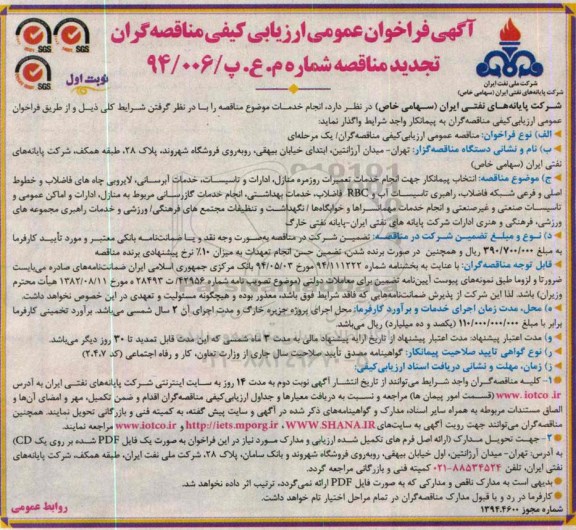 آگهی فراخوان عمومی ارزیابی کیفی مناقصه‌گران
تجدید مناقصه شماره م.ع.پ/۹۴/۰۰۶
نوبت اول
شرکت ملی نفت ایران
شرکت پایانه‌های نفتی ایران (سهامی خاص)
SGS SGS
SGS
شرکت پایانه‌های نفتی ایران (سهامی خاص) در نظر دارد، انجام خدمات موضوع مناقصه را با در نظر گرفتن شرایط کلی ذیل و از طریق فراخوان
عمومی ارزیابی کیفی مناقصه‌گران به پیمانکار واجد شرایط واگذار نماید:
الف) نوع فراخوان: مناقصه عمومی ارزیابی کیفی مناقصه‌گران/ یک مرحله‌ای
ب) نام و نشانی دستگاه مناقصه‌گزار: تهران- میدان آرژانتین، ابتدای خیابان بیهقی، روبه‌روی فروشگاه شهروند، پلاک ۲۸، طبقه همکف، شرکت پایانه‌های
نفتی ایران (سهامی خاص)
ج) موضوع مناقصه: انتخاب پیمانکار جهت انجام خدمات تعمیرات روزمره منازل، ادارات و تاسیسات، خدمات آبرسانی، لایروبی چاه های فاضلاب و خطوط
اصلی و فرعی شبکه فاضلاب، راهبری تاسیسات آب و RBC فاضلاب، خدمات بهداشتی، انجام خدمات گازرسانی مربوط به منازل، ادارات و اماکن عمومی و
تاسیسات صنعتی و غیرصنعتی و انجام خدمات مهمانسراها و خوابگاه‌ها / نگهداشت و تنظیفات مجتمع های فرهنگی/ ورزشی و خدمات راهبری مجموعه های
ورزشی، فرهنگی و هنری ادارات شرکت پایانه های نفتی ایران-پایانه نفتی خارگ
د) نوع و مبلغ تضمین شرکت در مناقصه: تضمین شرکت در مناقصه به‌صورت وجه نقد و یا ضمانت‌نامه بانکی معتبر و مورد تأیید کارفرما
به مبلغ ۳۹۰/۷۰۰/۰۰۰ ریال و همچنین در صورت برنده شدن، تضمین حسن انجام تعهدات به میزان ۱۰٪ نرخ پیشنهادی برنده مناقصه
قابل توجه مناقصه‌گران: با عنایت به بخشنامه شماره ۹۴/۱۱۱۳۲۲ مورخ ۹۴/۰۵/۰۳ بانک مرکزی جمهوری اسلامی ایران ضمانت‌نامه‌های صادره می‌بایست
ضرورتا و لزوما طبق نمونه‌های پیوست آیین‌نامه تضمین برای معاملات دولتی (موضوع تصویب نامه شماره ۴۲۹۵۶/ت ۲۸۴۹۳ ه مورخ ۱۳۸۲/۰۸/۱۱ هیأت محترم
وزیران) باشد. لذا این شرکت از پذیرش ضمانت‌نامه‌هایی که فاقد شرایط فوق باشد، معذور بوده و هیچگونه مسئولیت و تعهدی در این خصوص نخواهد داشت.
ه) محل، مدت زمان اجرای خدمات و برآورد کارفرما: محل اجرای پروژه جزیره خارگ و مدت اجرای آن ۲ سال شمسی می‌باشد. برآورد تخمینی کارفرما
برابر با مبلغ ۱۱۰/۰۰۰/۰۰۰/۰۰۰ (یکصد و ده میلیارد) ریال می‌باشد.
و) مدت اعتبار پیشنهاد: مدت اعتبار پیشنهاد از تاریخ ارایه پیشنهاد مالی به مدت ۳ ماه شمسی که این مدت قابل تمدید تا ۳۰ روز دیگر می‌باشد.
ز) نوع گواهی تایید صلاحیت پیمانکار: گواهینامه مصدق تأیید صلاحیت سال جاری از وزارت تعاون، کار و رفاه اجتماعی (کد ۲،۴،۷)
ژ) زمان، مهلت و نشانی دریافت اسناد ارزیابی کیفی:
۱- کلیه مناقصه‌گران واجد شرایط می‌توانند از تاریخ انتشار آگهی نوبت دوم به مدت ۱۴ روز به سایت اینترنتی شرکت پایانه‌های نفتی ایران به آدرس
www.iotco.ir (قسمت امور پیمان ها) مراجعه و نسبت به دریافت معیارها و جداول ارزیابی کیفی مناقصه‌گران اقدام و ضمن تکمیل، مهر و امضای آن‌ها و
الصاق مستندات مربوطه به همراه سایر اسناد، مدارک و گواهینامه‌های ذکر شده در آگهی و سایت پیش گفته، به کمیته فنی و بازرگانی تحویل نمایند. همچنین
مناقصه‌گران می‌توانند جهت رویت آگهی به سایت‌های WWW.SHANA.IR ، http://iets.mporg.ir و www.iotco.ir مراجعه نمایند.
۲- جهت تحویل مدارک (ارائه اصل فرم های تکمیل شده ارزیابی و مدارک مورد نیاز در این فراخوان به صورت یک فایل PDF شده بر روی یک CD)
به آدرس: تهران- میدان آرژانتین، اول خیابان بیهقی، روبه‌روی فروشگاه شهروند و بانک سامان، پلاک ۲۸، شرکت ملی نفت ایران، طبقه همکف، شرکت پایانه‌های
نفتی ایران، تلفن ۸۸۵۳۴۵۲۴-۰۲۱ کمیته فنی و بازرگانی مراجعه گردد.
بدیهی است به مدارک ناقص و مدارکی که به صورت فایل PDF ارائه نمی‌گردد، ترتیب اثر داده نخواهد شد.
کارفرما در رد و یا قبول مدارک مناقصه‌گران در تمام مراحل اختیار تام خواهد داشت.
شماره مجوز ۱۳۹۴،۴۶۰۰
روابط عمومی